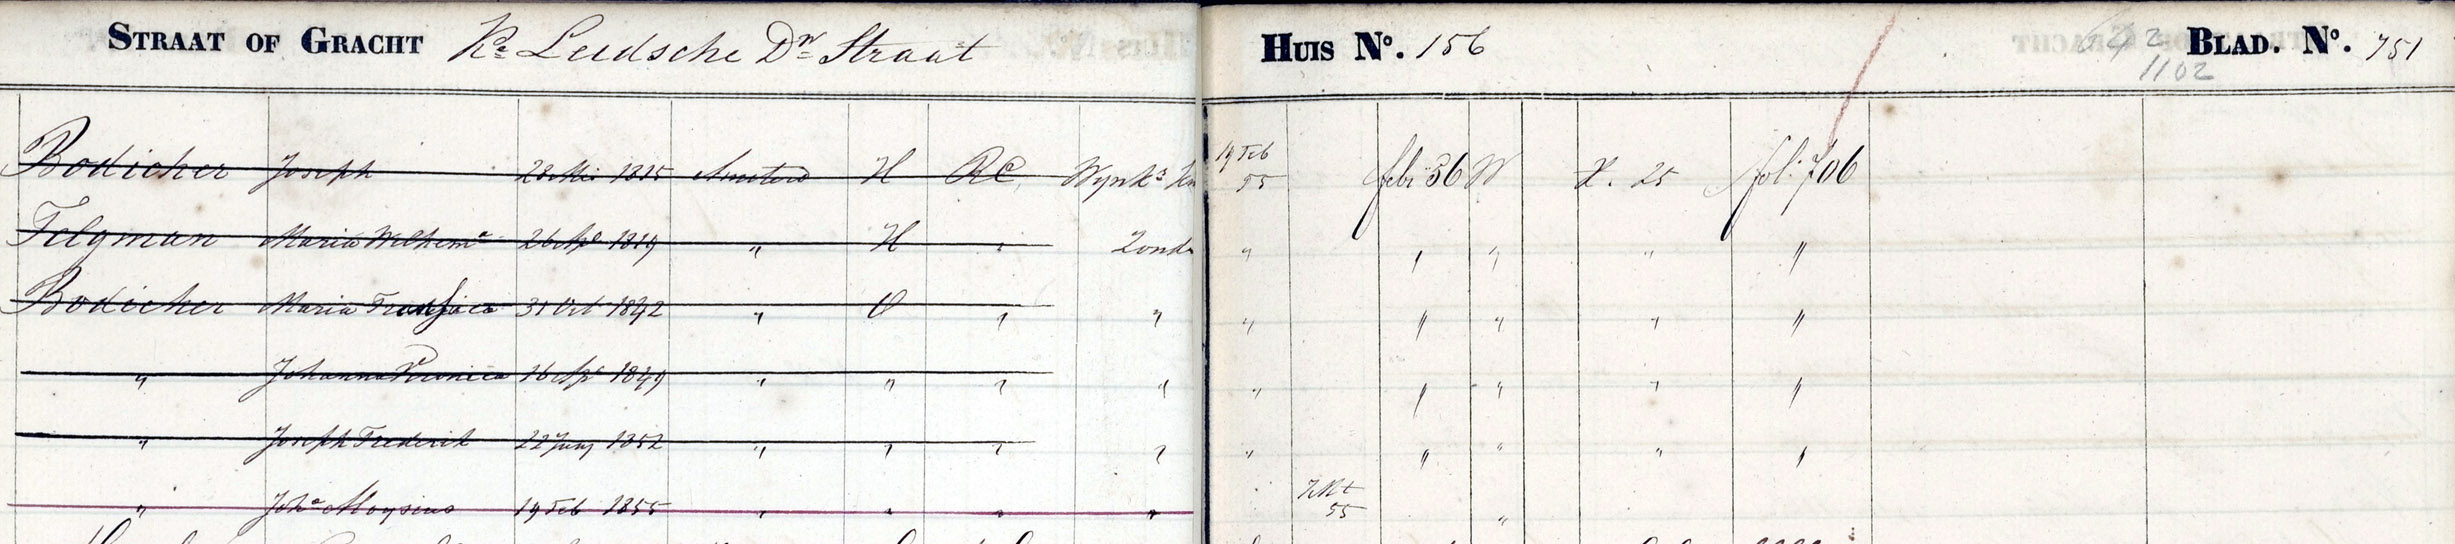 STRAAT OF GRACHT Ke Leidsche Dw Straat HUIS No. 156 1102 BLAD. No. 751
Bodicher Joseph 23 Mei 1815 Amsterd H RC Wynks 19 Feb 55 febr 56 W X. 25 fol. 706
Telgman Maria Wilhemᵃ 26 Apl 1819 " H " Zond " " " " "
Bodicher Maria 31 Oct 1842 " O " " " " " " "
" Johanna Veronica 16 Apl 1849 " " " " " " " " "
" Joseph Frederik 22 Juny 1852 " " " " " " " " "
" Johs Aloysius 19 Feb 1855 " " " " 55 "